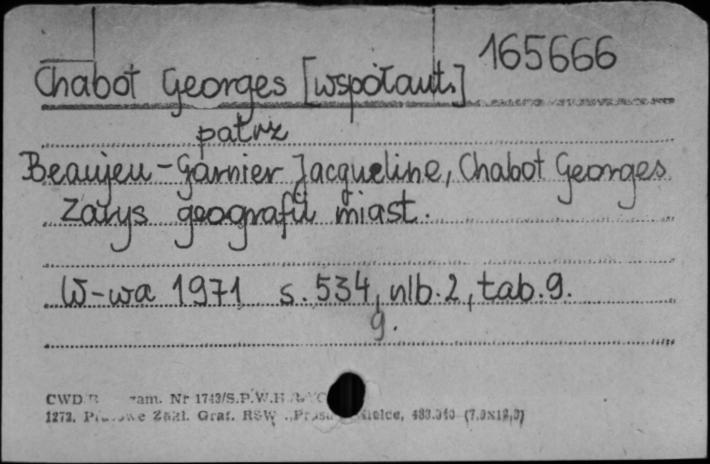 165666
Chabot Georges [współaut.]
patrz
Beaujeu-Garnier Jacqueline, Chabot Georges
Zarys geografii miast.
W-wa 1971 s. 534, nlb. 2, tab. 9.
g.
CWD zam. Nr 1743/S.P.W.H.
1273. Zakł. Graf. RSW „Prasa" Kielce,